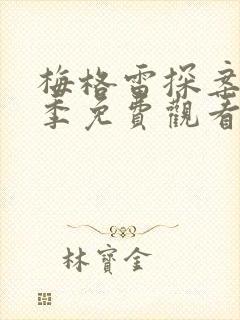 梅格雷探案
季免費觀看
林寶金